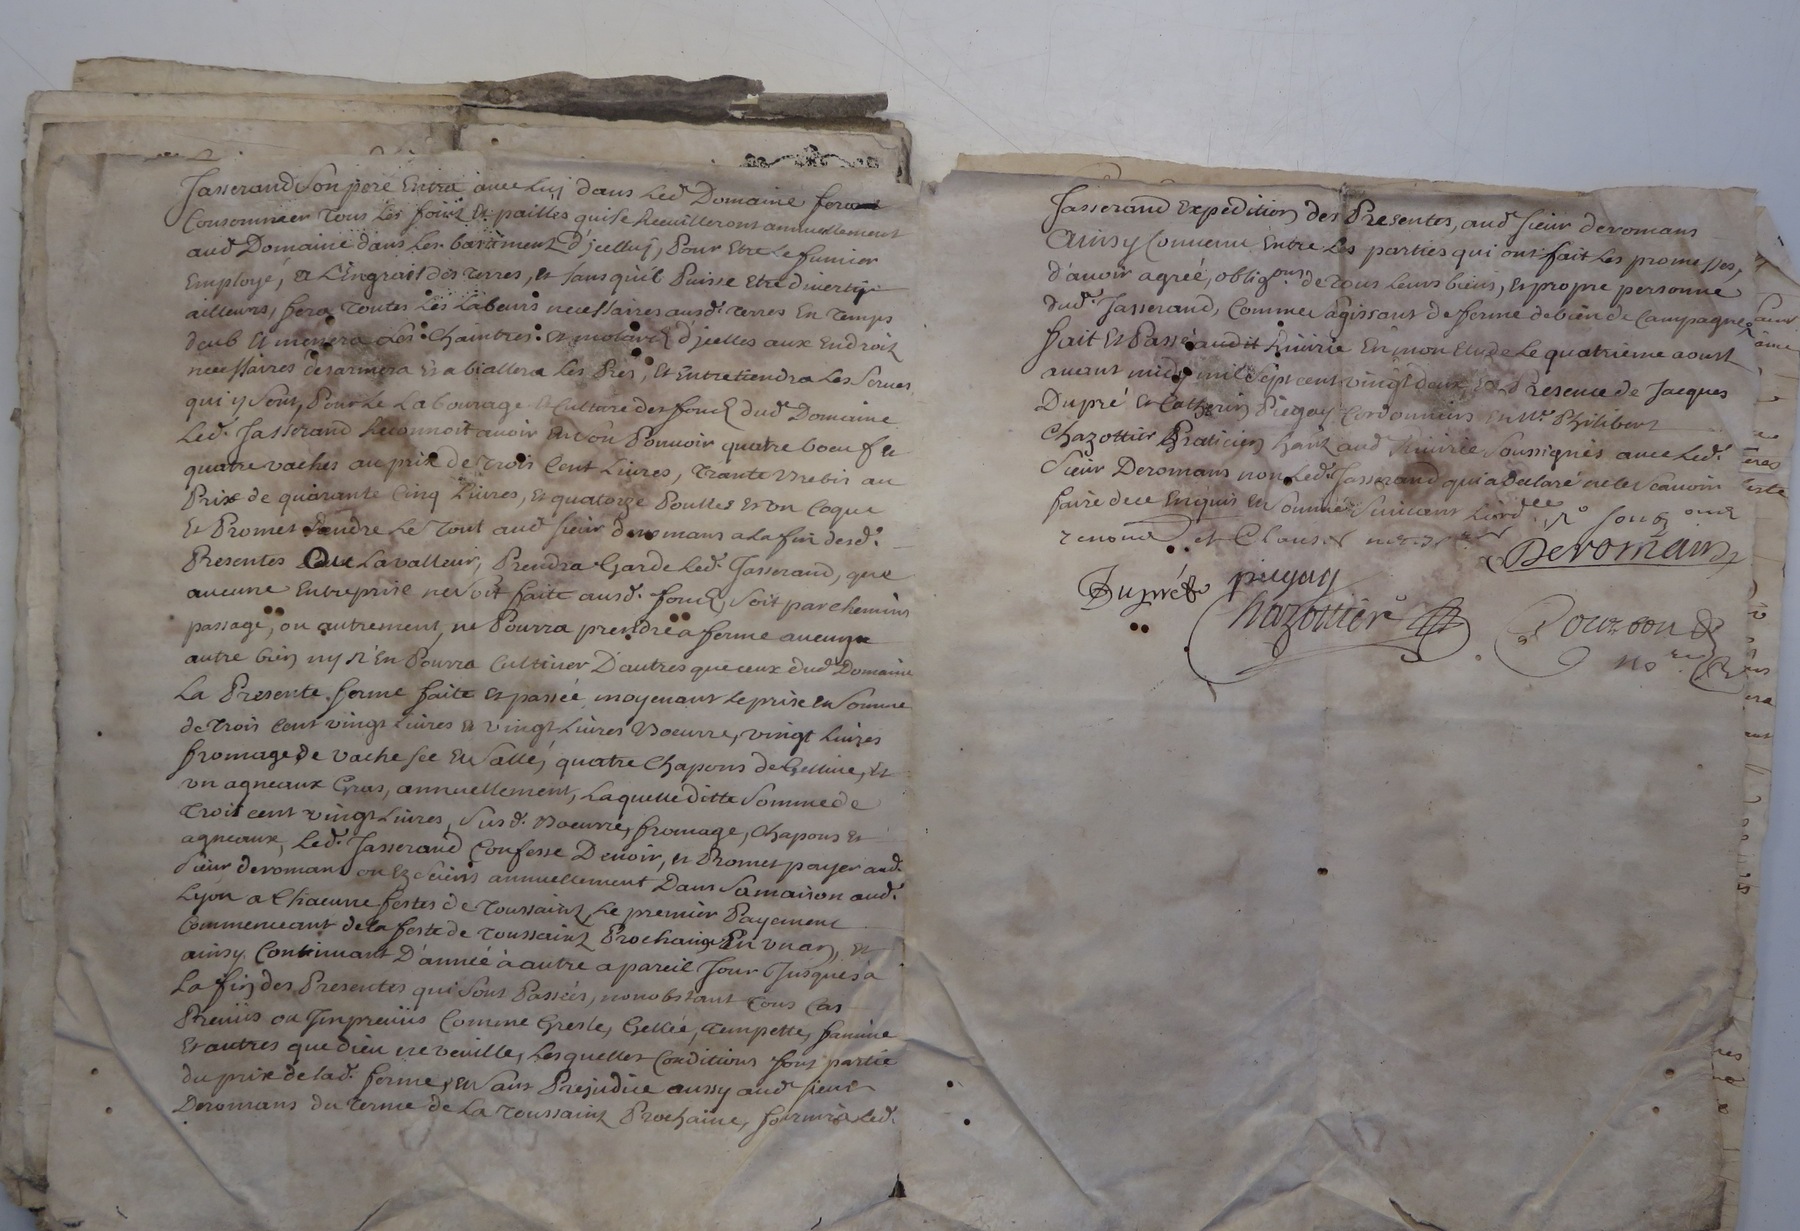 Jasserand son pere Entré avec luy dans Led. Domaine fera
Consommer Tous Les foins Et pailles qui se Recuilleront annuellement
aud. Domaine dans Les batiment D'jcelluy, Pour Etre Le fumier
Employé, a L'Engrais des Terres, et sans qu'il Puisse Etre diverty
ailleurs, fera Toutes Les Labeurs necessaires ausd. Terres En Temps
deub Et menera Les Chaintres Et d'jcelles aux Endroit
necessaires desarmera Et abiallera Les Prés, Et Entretiendra Les Serves
qui y Sont, Pour Le Labourage Et Culture des fond dud. Domaine
Led. Jasserand Reconnoit avoir En son Pouvoir quatre boeuf Et
quatre vaches au prix de Trois Cent Livres, Trante brebis au
Prix de quarante Cinq Livres, Et quatorze Poulles Et un Coque
Et Promet Rendre Le Tout aud. sieur deromans a La fin desd.
Presentes Ou La valleur, Prendra Garde Led. Jasserand, que
aucune Entreprise ne soit faite ausd. fond, soit par chemins
passage, ou autrement, ne Pourra prendre a ferme aucun
autre bien ny N'En Pourra Cultiver D'autres que ceux dud. Domaine
La Presente ferme faite Et passée moyenant Le prix Et Somme
de Trois Cent vingt Livres Et vingt Livres Boeurre, vingt Livres
fromage de vache sec Et Sallé, quatre Chapons de Gelline, Et
un agneaux Gras, annuellement, Laquelle ditte Somme de
Trois cent vingt Livres, Susd. Boeurre, fromage, Chapons Et
agneaux, Led. Jasserand Confesse Devoir, et Promet payer aud.
Sieur deromans ou Ez Siens annuellement Dans Sa maison aud.
Lyon a Chacune festes de Toussaint, Le premier Payement
Commenceant de la feste de Toussaint Prochaine En un an, Et
ainsy Continuant D'année à autre a pareil Jour Jusques a
La fin des Presentes qui Sont Passées, nonobstant Tous Cas
Prevüs ou Jmprevüs Comme Gresle, Gellée, Tempette, famine
Et autres que dieu ne veuille, Lesquelles Conditions font partie
du prix de lad. ferme, Et Sans Prejudice aussy aud. sieur
Deromans du Terme de La Toussaint Prochaine, fournira Led.
Jasserand Expedition des Presentes, aud. sieur deromans
Ainsy Convenu Entre Les parties qui ont fait Les promesses,
d'avoir agreé, oblig.ons de Tous Leurs biens, Et propre personne
dud. Jasserand, Comme agissant de ferme de bien de Campagne
fait Et Passé audit En mon Etude Le quatrieme aoust
avant midy mil Sept cent vingt deux, En Presence de Jacques
Dupré Et Catherin Piegay Cordonniers Et Mr. Philibert
Chazottier Praticien aud. Soussignés avec Led.
Sieur Deromans non Led. Jasserand qui a declaré ne le Scavoir
faire de ce Enquis Et Sommé Suivant Lord.ce
renoncé et Clauses
Deromans
Dupré
piegay
Chazottier
no.re